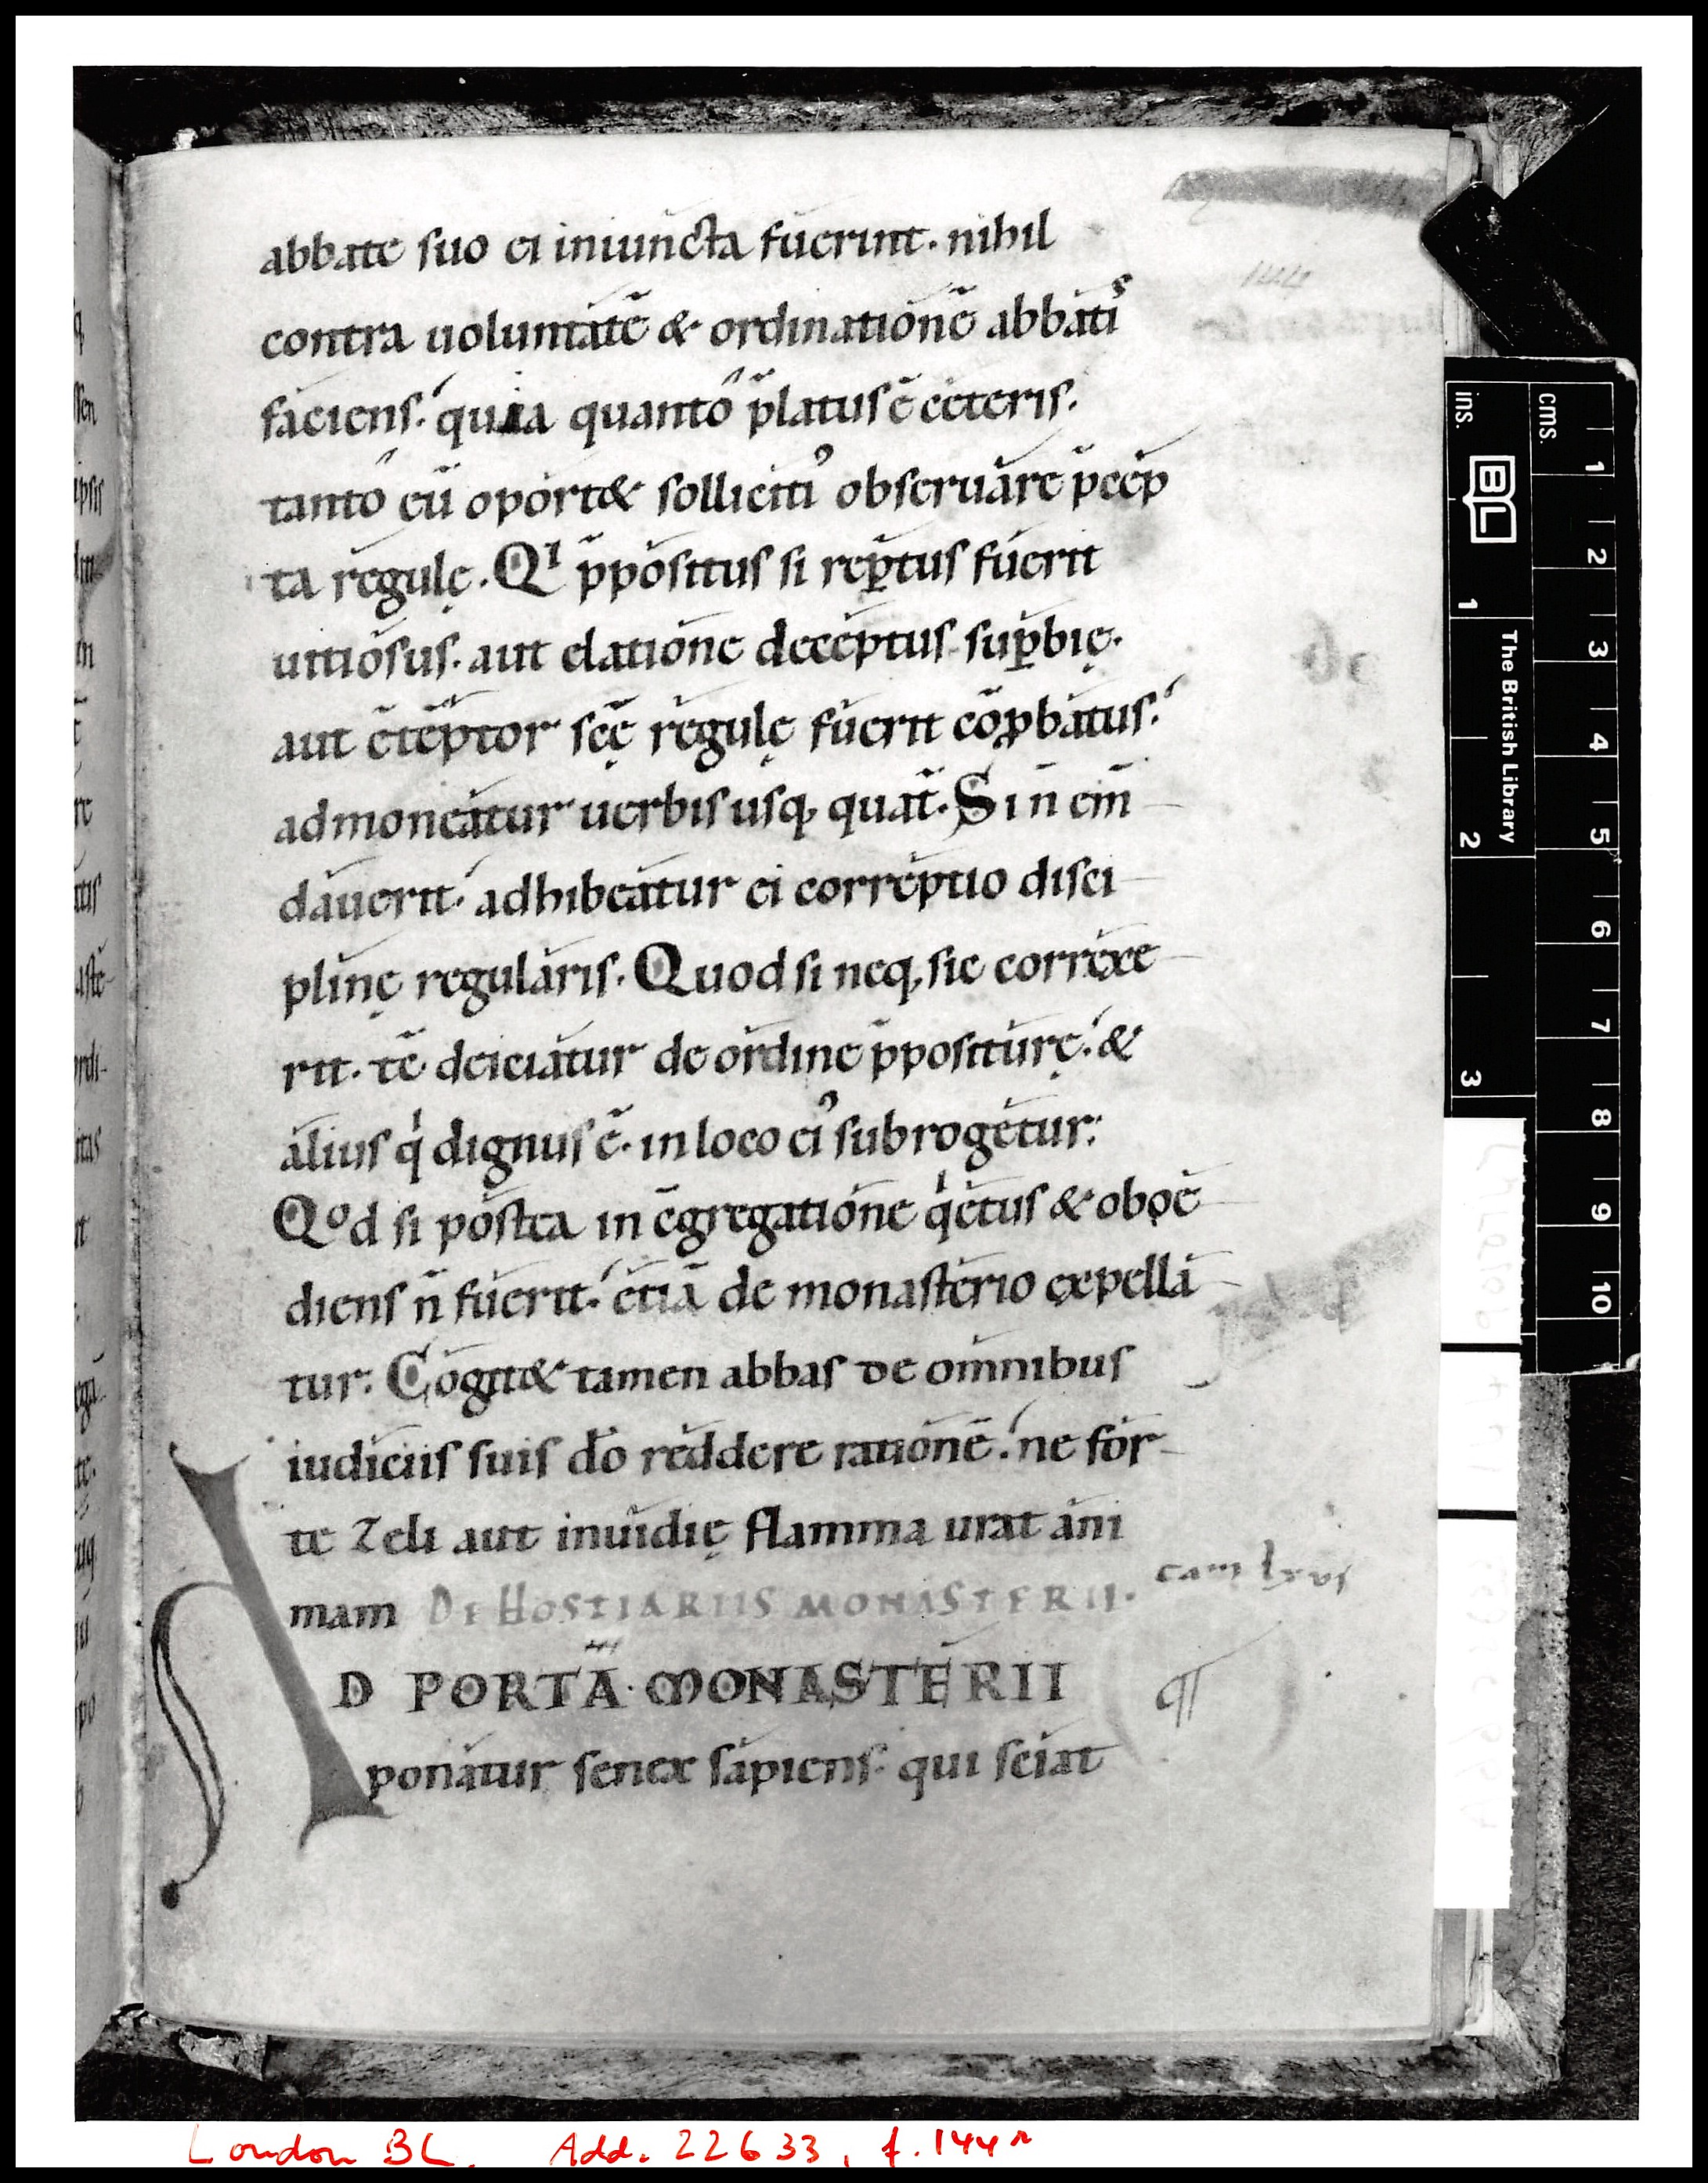 abbate suo ei iniuncta fuerint. nihil
contra uoluntatē & ordinationē abbatiˢ
faciens. quia quanto p̄latus ē ceteris.
tanto eū oport& sollicitiꝰ obseruare p̄cep
ta regulę. Qⁱ p̄positus si rep̱tus fuerit
uitiosus. aut elatione deceptus sup̱bię.
aut c̄tēptor scę̄ regulę fuerit cōꝓbatus.
admoneatur uerbis usq, quat̄. Si n̄ em̄
dauerit. adhibeatur ei correptio disci
plinę regularis. Quod si neq, sic correxe
rit. tc̄ deiciatur de ordine p̄positurę. &
alius qⁱ dignus ē. in loco eiꝰ subrogetur.
Qºd si postea in c̄gregatione qⁱetus & oboe
diens n̄ fuerit. etiā de monasterio expella
tur. Cogit& tamen abbas de omnibus
iudiciis suis dō reddere rationē. ne for
te zeli aut inuidię flamma urat ani
mam DE HOSTIARIIS MONASTERII. cam lxvi
AD PORTĀ MONASTERII ¶
ponatur senex sapiens. qui sciat
144
ins. cms.
BL The British Library
1 2 3
1 2 3 4 5 6 7 8 9 10
London BL. Add. 22633, f. 144r